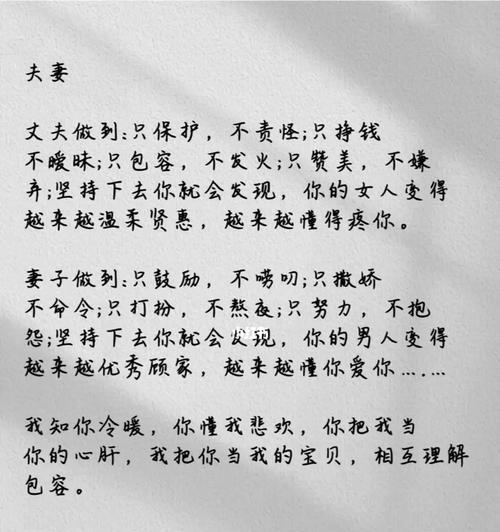 夫妻
丈夫做到:只保护，不责怪;只挣钱
不暧昧;只包容，不发火;只赞美，不嫌
弃;坚持下去你就会发现，你的女人变得
越来越温柔贤惠，越来越懂得疼你。
妻子做到:只鼓励，不唠叨;只撒娇
不命令;只打扮，不熬夜;只努力，不抱
怨;坚持下去你就会发现，你的男人变得
越来越优秀顾家，越来越懂你爱你……
我知你冷暖，你懂我悲欢，你把我当
你的心肝，我把你当我的宝贝，相互理解
包容。